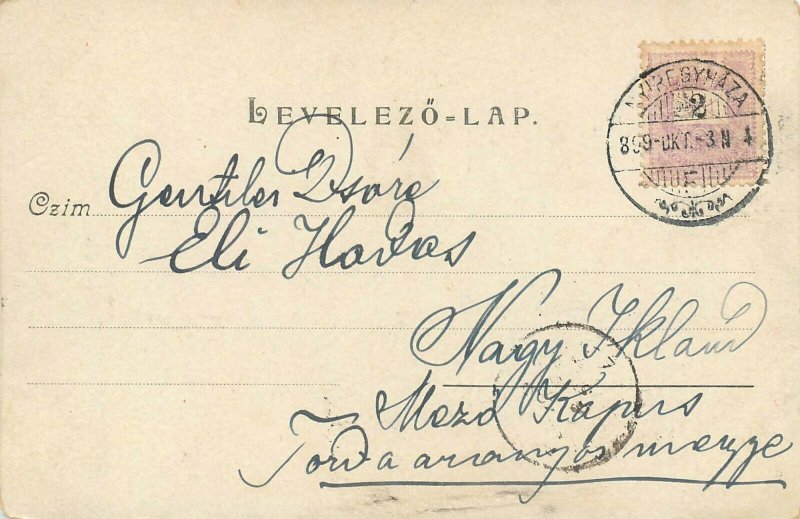 NYIREGYHÁZA
2
899-OKT.-3 N 4
LEVELEZŐ=LAP.
Czim
Gentiler Dsóre
Eli Havas
Nagy Ikland
Mező Kapus
Torda aranyos megye